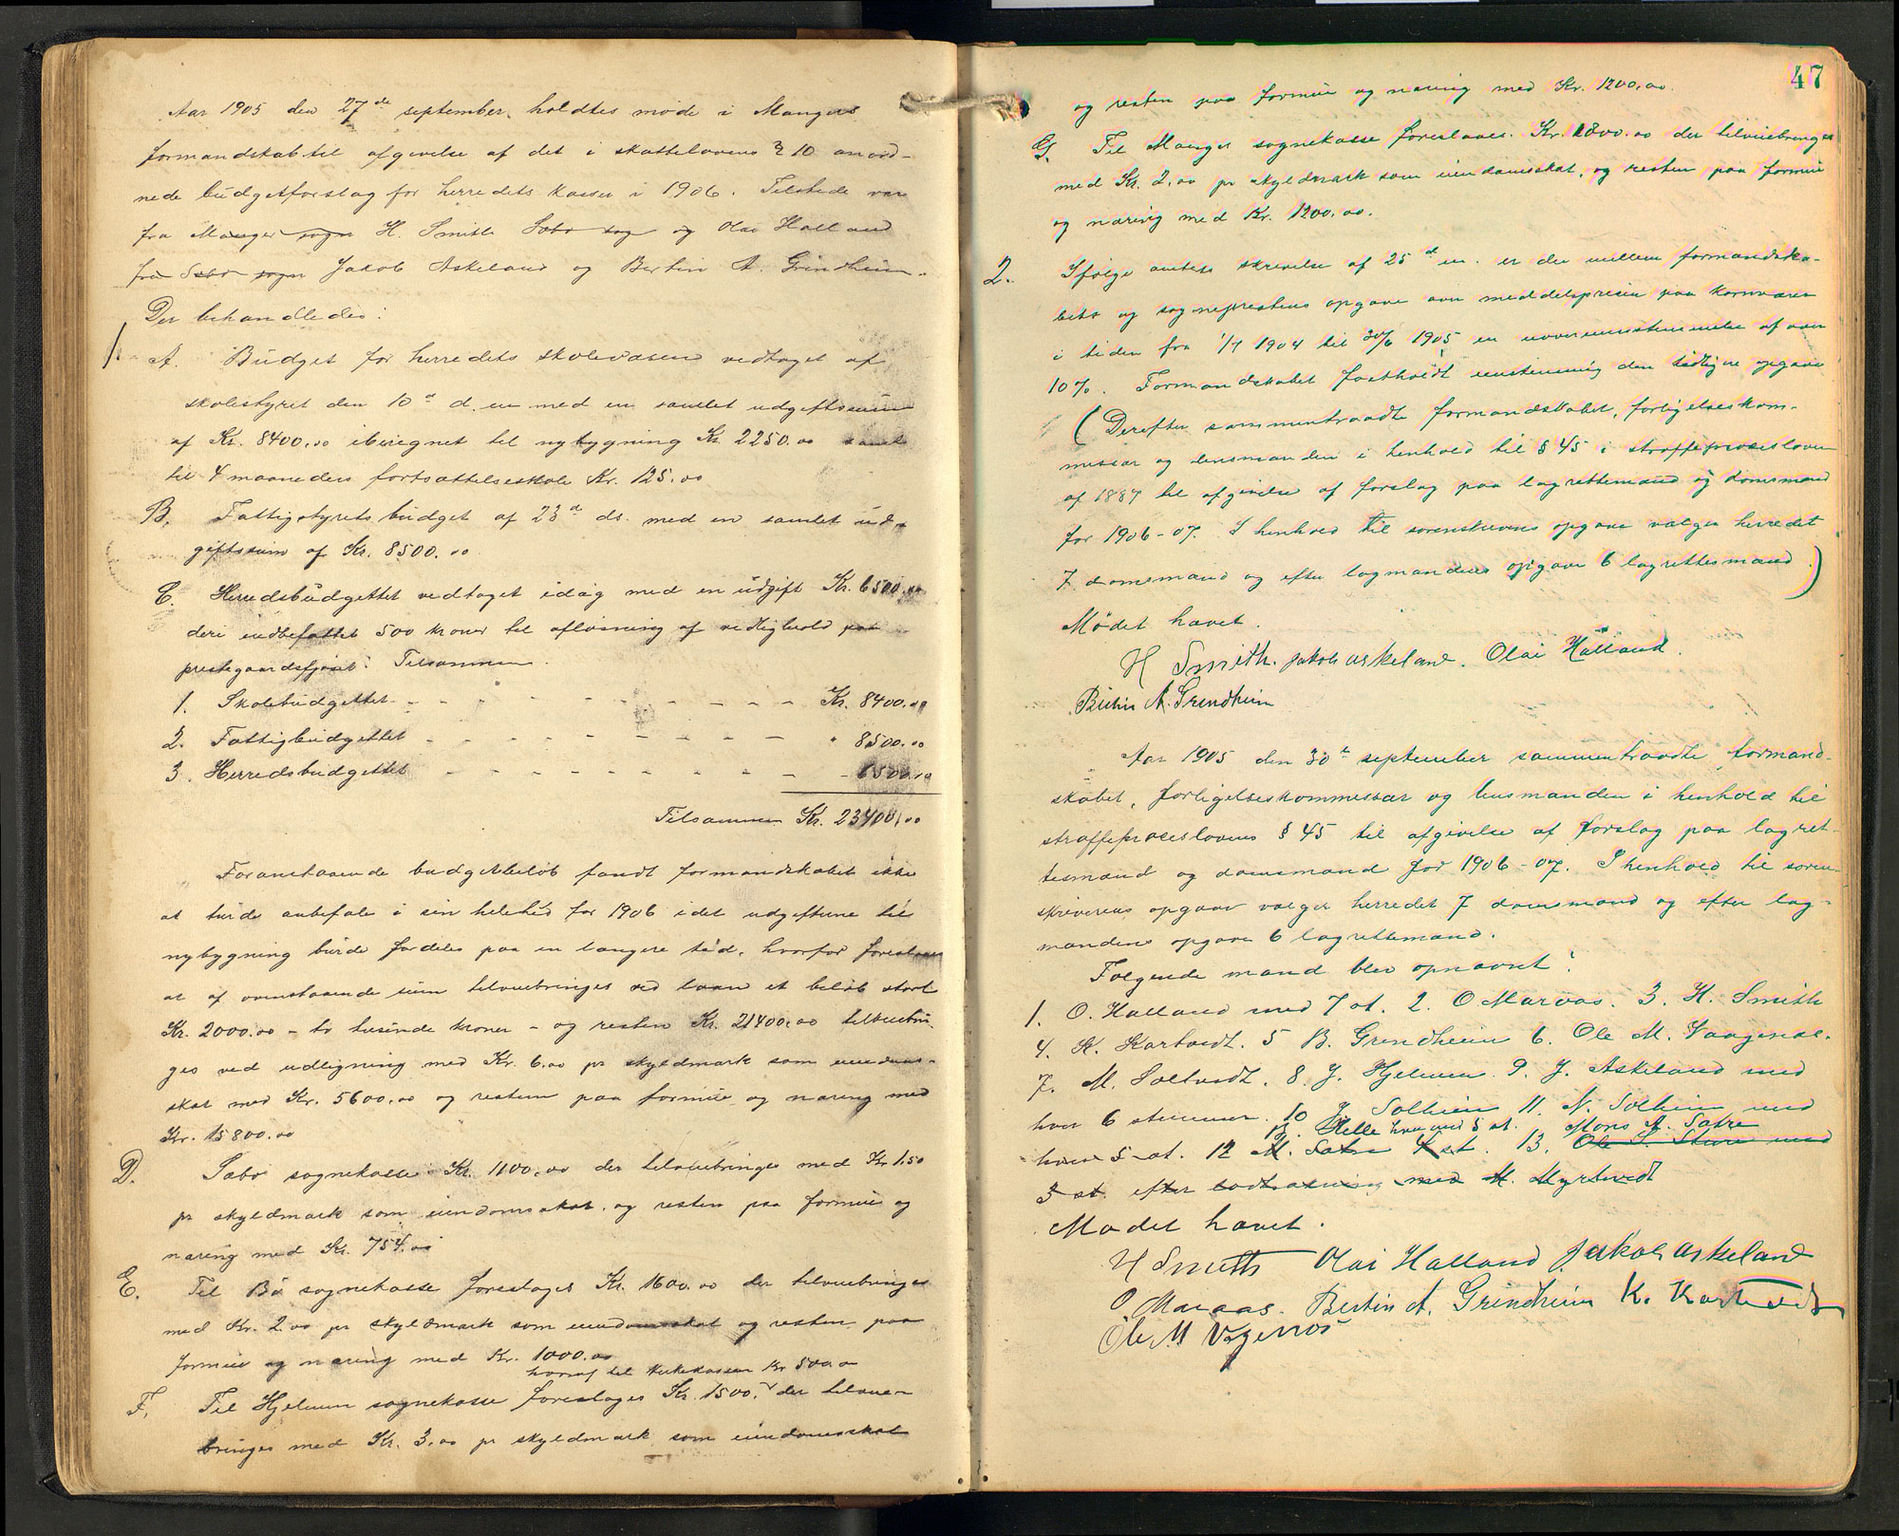 Aar 1905 den 27de september holdtes møde i Mangers
formandskab til afgivelse af det i skattelovens § 10 anord-
nede budgetforslag for herredets kasser i 1906. Tilstede var
fra Manger sogn H. Smith Sæbø sogn og Olai Halland
fra Sæbø sogn Jakob Askeland og Bertin A. Grindheim.
Der behandledes:
1. A. Budget for herredets skolevæsen vedtaget af
skolestyret den 10d d. m. med en samlet udgiftssum
af Kr. 8400.00 iberegnet til nybygning Kr. 2250.00 samt
til 4 maaneders fortsættelsesskole Kr. 125.00
B. Fattigstyrets budget af 23d ds. med en samlet ud-
giftssum af Kr. 8500.00
C. Herredsbudgettet vedtaget idag med en udgift Kr. 6500.00
deri indbefattet 500 kroner til afløsning af vedligehold paa
prestegaardsfjøset. Tilsammen
1. Skolebudgettet - - - - - - - - Kr. 8400.00
2. Fattigbudgettet - - - - - - - - " 8500.00
3. Herredsbudgettet - - - - - - - - 6500.00
Tilsammen Kr. 23400,00
Foranstaaende budgetbeløb fandt formandskabet ikke
at turde anbefale i sin helehed for 1906 idet udgifterne til
nybygning burde fordeles paa en længere tid, hvorfor foreslaaes
at af ovenstaaende sum tilveiebringes ved laan et beløb stort
Kr. 2000.00 - to tusinde kroner - og resten Kr. 21400.00 tilveiebrin-
ges ved udligning med Kr. 6.00 pr skyldmark som eiendoms-
skat med Kr. 5600.00 og resten paa formue og næring med
Kr. 15800.00
D. Sæbø sognekasse Kr. 1100.00 der tilveiebringes med Kr 1.50
pr skyldmark som eiendomsskat, og resten paa formue og
næring med Kr. 754.00
E. Til Bø sognekasse foreslages Kr. 1600.00 der tilveiebringes
med Kr. 2.00 pr skyldmark som eiendomsskat og resten paa
formue og næring med Kr. 1000.00
hvoraf til kirkekassen Kr 500.00
F. Til Hjelmen sognekasse foreslages Kr. 1500. der tilveie-
bringes med Kr. 3.00 pr skyldmark som eiendomsskat
47
og resten paa formue og næring med Kr. 1200.00.
G. Til Manger sognekasse foreslaaes Kr. 1800.00 der tilveiebringes
med Kr. 2.00 pr skyldmark som eiendomsskat, og resten paa formue
og næring med Kr. 1200.00.
2. Ifølge amtets skrivelse af 25d m. er der mellem formandska-
bets og sogneprestens opgave over meddelsprisen paa kornvarer
i tiden fra 1/7 1904 til 30/6 1905 en uoverensstemmelse af over
10%. Formandskabet fastholdt enstemmig den tidligere opgave
(Derefter sammentraadte formandskabet, forligelseskom-
missær og lensmanden i henhold til § 45 i straffeprocesloven
af 1887 til afgivelse af forslag paa lagrettemænd og domsmænd
for 1906-07. I henhold til sorenskriverens opgave vælger herredet
7 domsmænd og efter lagmandens opgave 6 lagrettesmænd.)
Mødet hævet.
H Smith. Jakob Askeland. Olai Halland.
Bertin A. Grindheim
Aar 1905 den 30te september sammentraadte formand-
skabet, forligelseskommissær og lensmanden i henhold til
straffeproceslovens § 45 til afgivelse af forslag paa lagret-
tesmænd og domsmænd for 1906-07. I henhold til soren-
skriverens opgave vælger herredet 7 domsmænd og efter lag-
mandens opgave 6 lagrettemænd.
Følgende mænd blev opnævnt:
1. O. Halland med 7 st. 2. O Marøas. 3. H. Smith
4. K. Kartveit. 5 B. Grindheim 6. Ole M. Vaagenes.
7. M. Soltvedt. 8. J. Hjelmen 9. J. Askeland med
hver 6 stemmer. 10 J. Solheim 11. N. Solheim med
12. Helle hver med 5 st. Mons A. Sætre
hver 5 st. 12 M. Sætre 4 st. 13. Ole S. Sture med
3 st. efter lodtrækning med M. Myrtvedt
Mødet hævet.
H Smith Olai Halland Jakob Askeland
O Marøas. Bertin A. Grindheim K. Kartveit
Ole M Vågenes